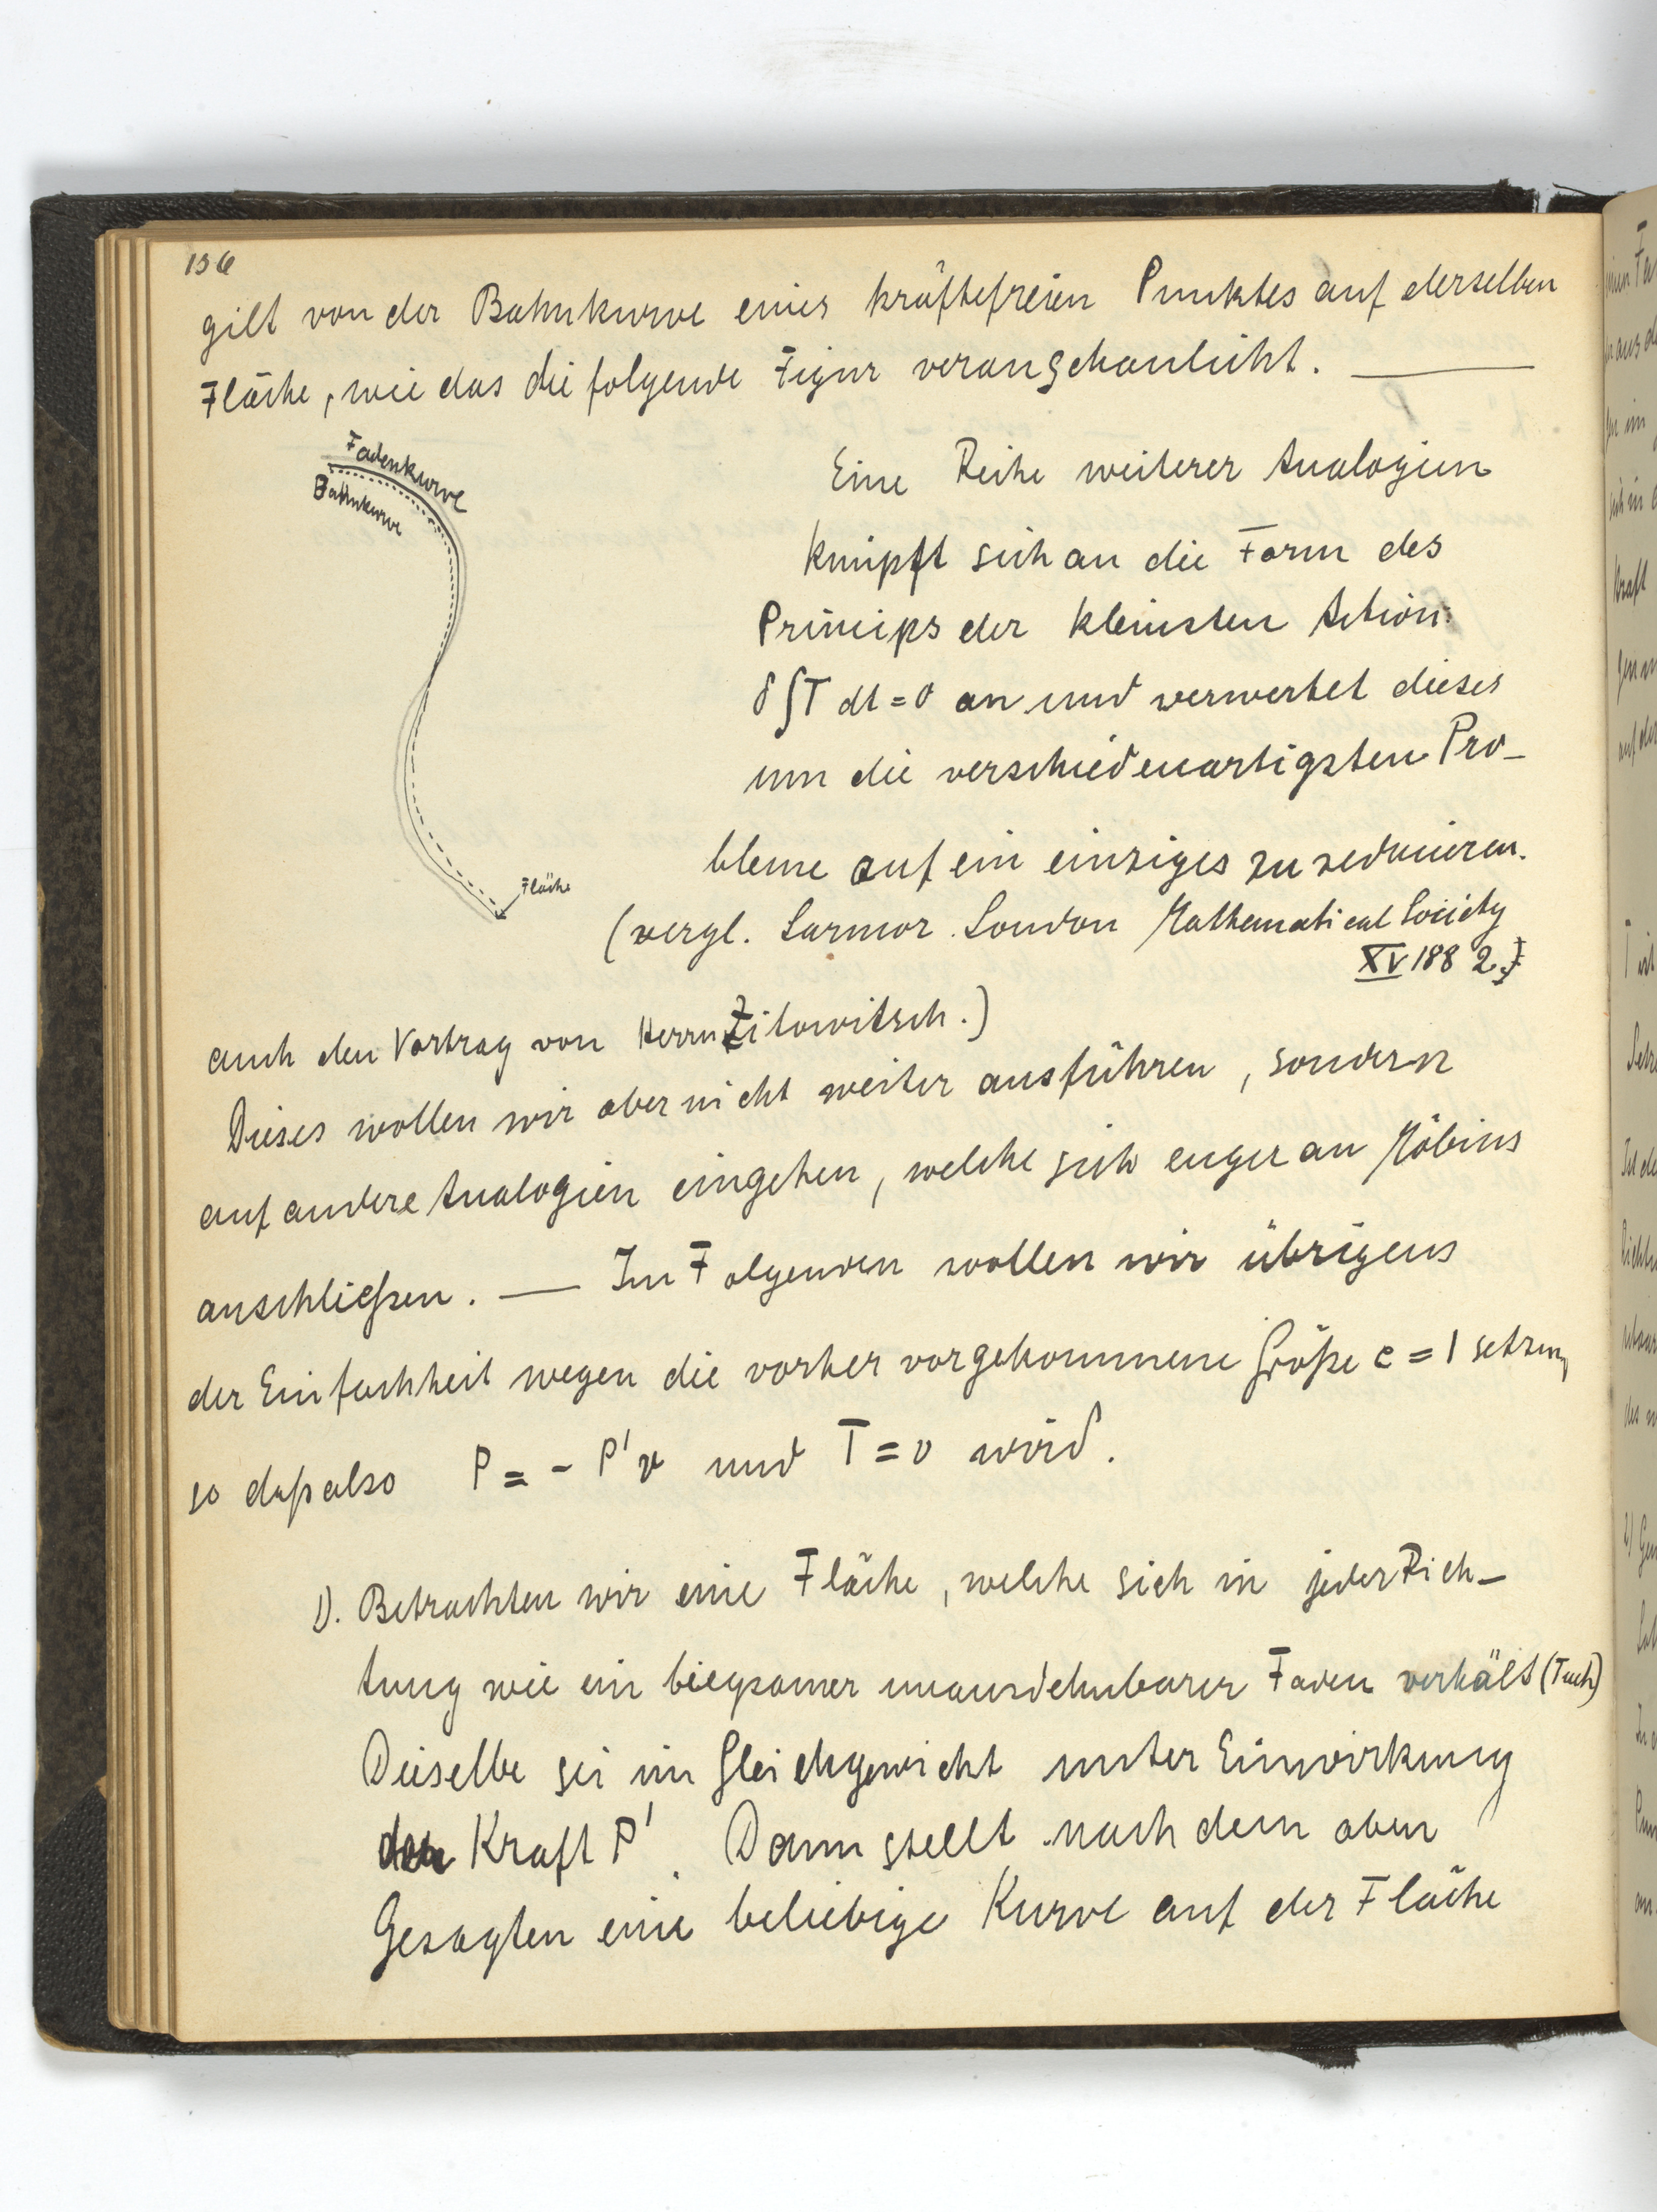 136
gilt von der Bahnkurve eines kräftefreien Punktes auf derselben
Fläche, wie das die folgende Figur veranschaulicht. —
Fadenkurve
Bahnkurve
Fläche
Eine Reihe weiterer Analogien
knüpft sich an die Form des
Princips der kleinsten Action:
δ∫T dt = 0 an und verwertet dieses
um die verschiedenartigsten Pro-
bleme auf ein einziges zu reducieren.
(vergl. Larmor. London Mathematical Society
XV 1882.)
auch den Vortrag von Herrn Zilowitsch.)
Dieses wollen wir aber nicht weiter ausführen, sondern
auf andere Analogien eingehen, welche sich enger an Möbius
anschließen. — Im Folgenden wollen wir übrigens
der Einfachheit wegen die vorher vorgekommene Größe c = 1 setzen,
so daß also P = - P'v und T = v wird.
1). Betrachten wir eine Fläche, welche sich in jeder Rich-
tung wie ein biegsamer unausdehnbarer Faden verhält (Tuch)
Dieselbe sei im Gleichgewicht unter Einwirkung
der Kraft P'. Dann stellt nach dem oben
Gesagten eine beliebige Kurve auf der Fläche